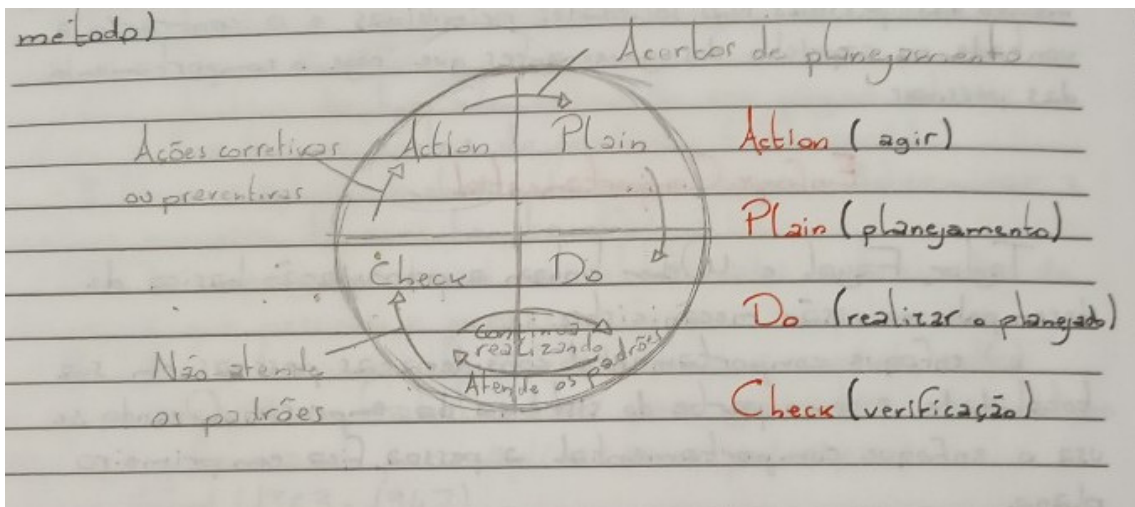 método)
Acertos de planejamento
Ações corretivas
ou preventivas
Action
Plain
Check
Do
Continua
realizando
Atende os padrões
Não atende
os padrões
Action (agir)
Plain (planejamento)
Do (realizar o planejado)
Check (verificação)